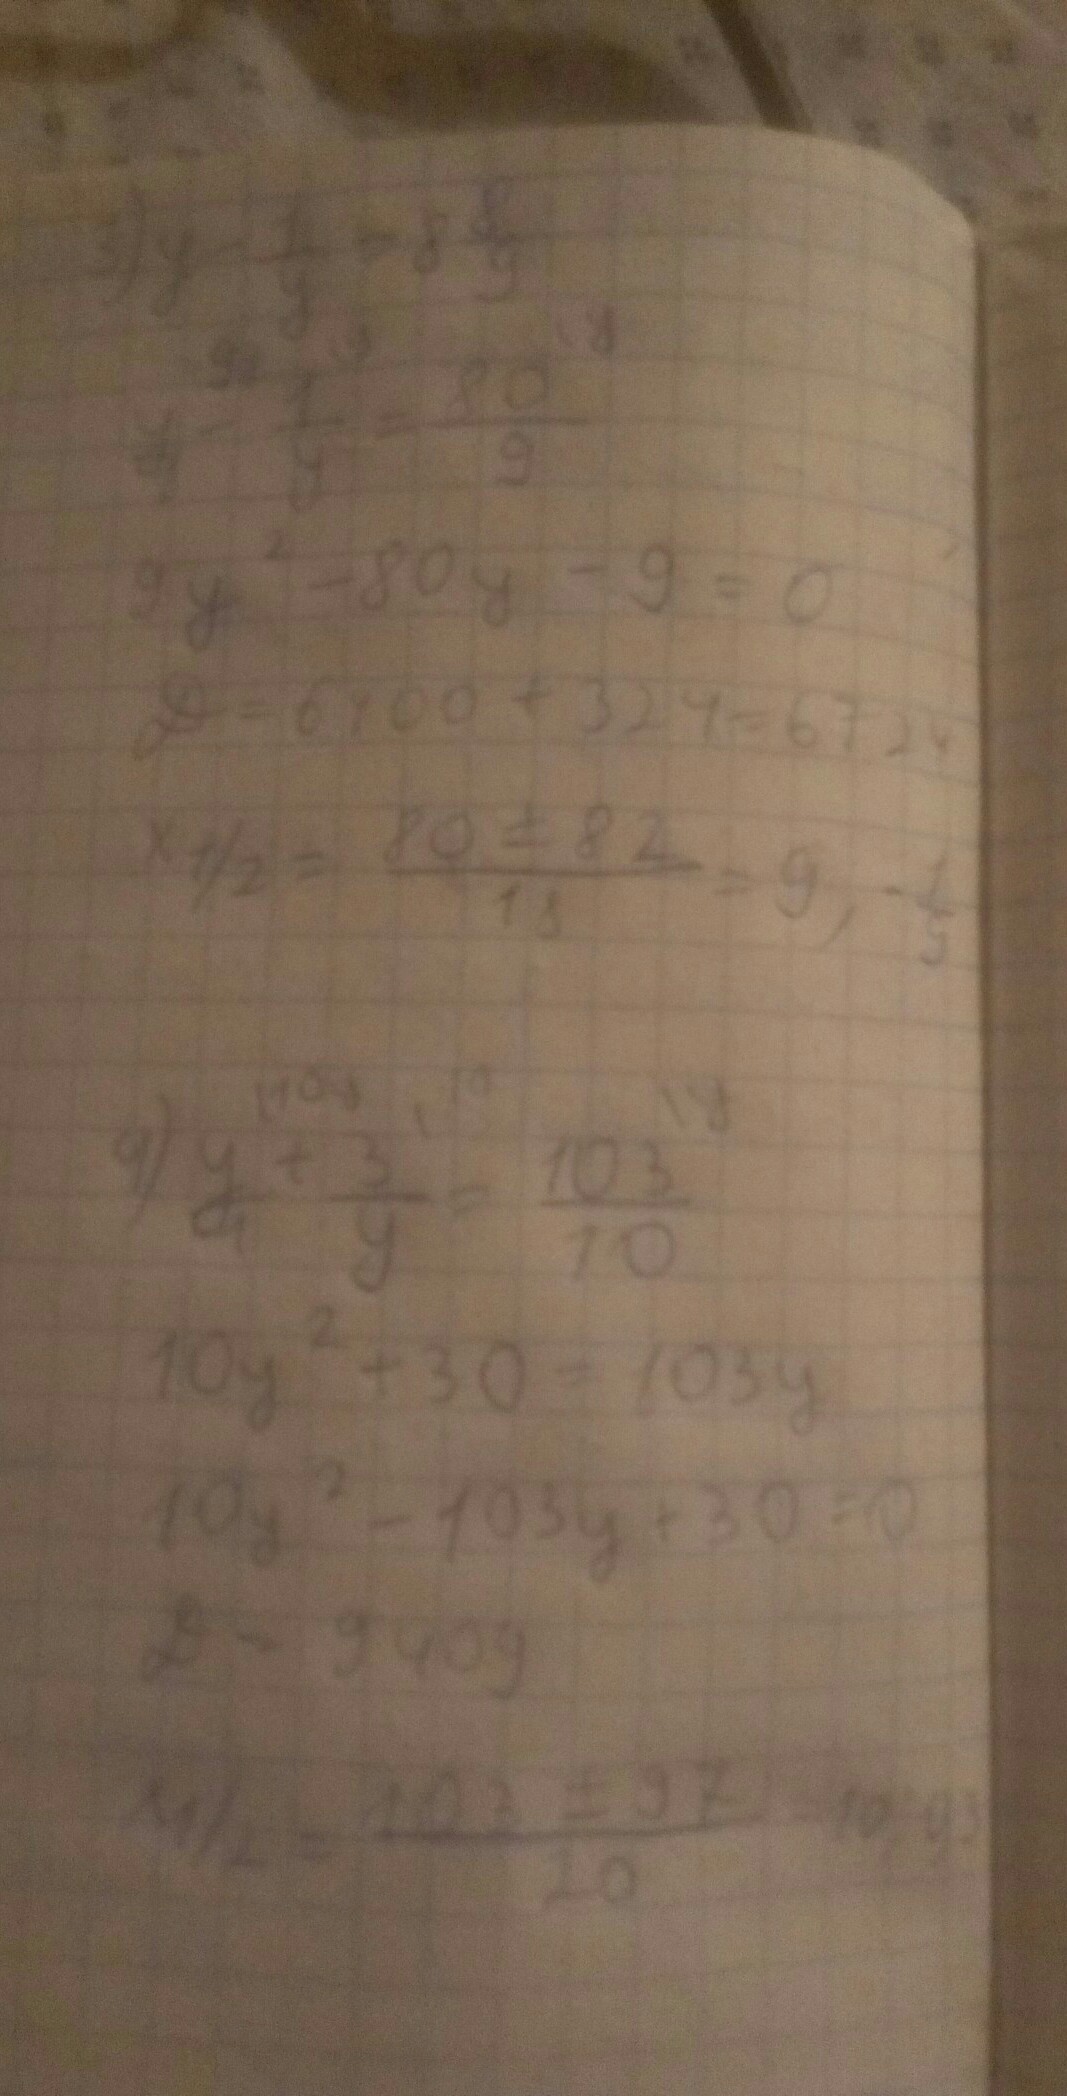 3) y - 1/y = 8 8/9
y/1 \9y - 1/y \9 = 80/9 \y
9y² - 80y - 9 = 0
D = 6400 + 324 = 6724
x 1/2 = (80 ± 82)/18 = 9, -1/9
4) y/1 \10y + 3/y \10 = 103/10 \y
10y² + 30 = 103y
10y² - 103y + 30 = 0
D = 9409
x 1/2 = (103 ± 97)/20 = 10,